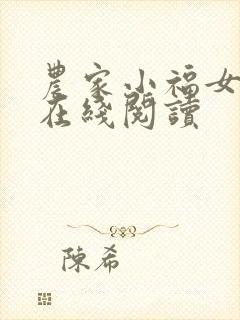 農家小福女
在綫閱讀
陳希